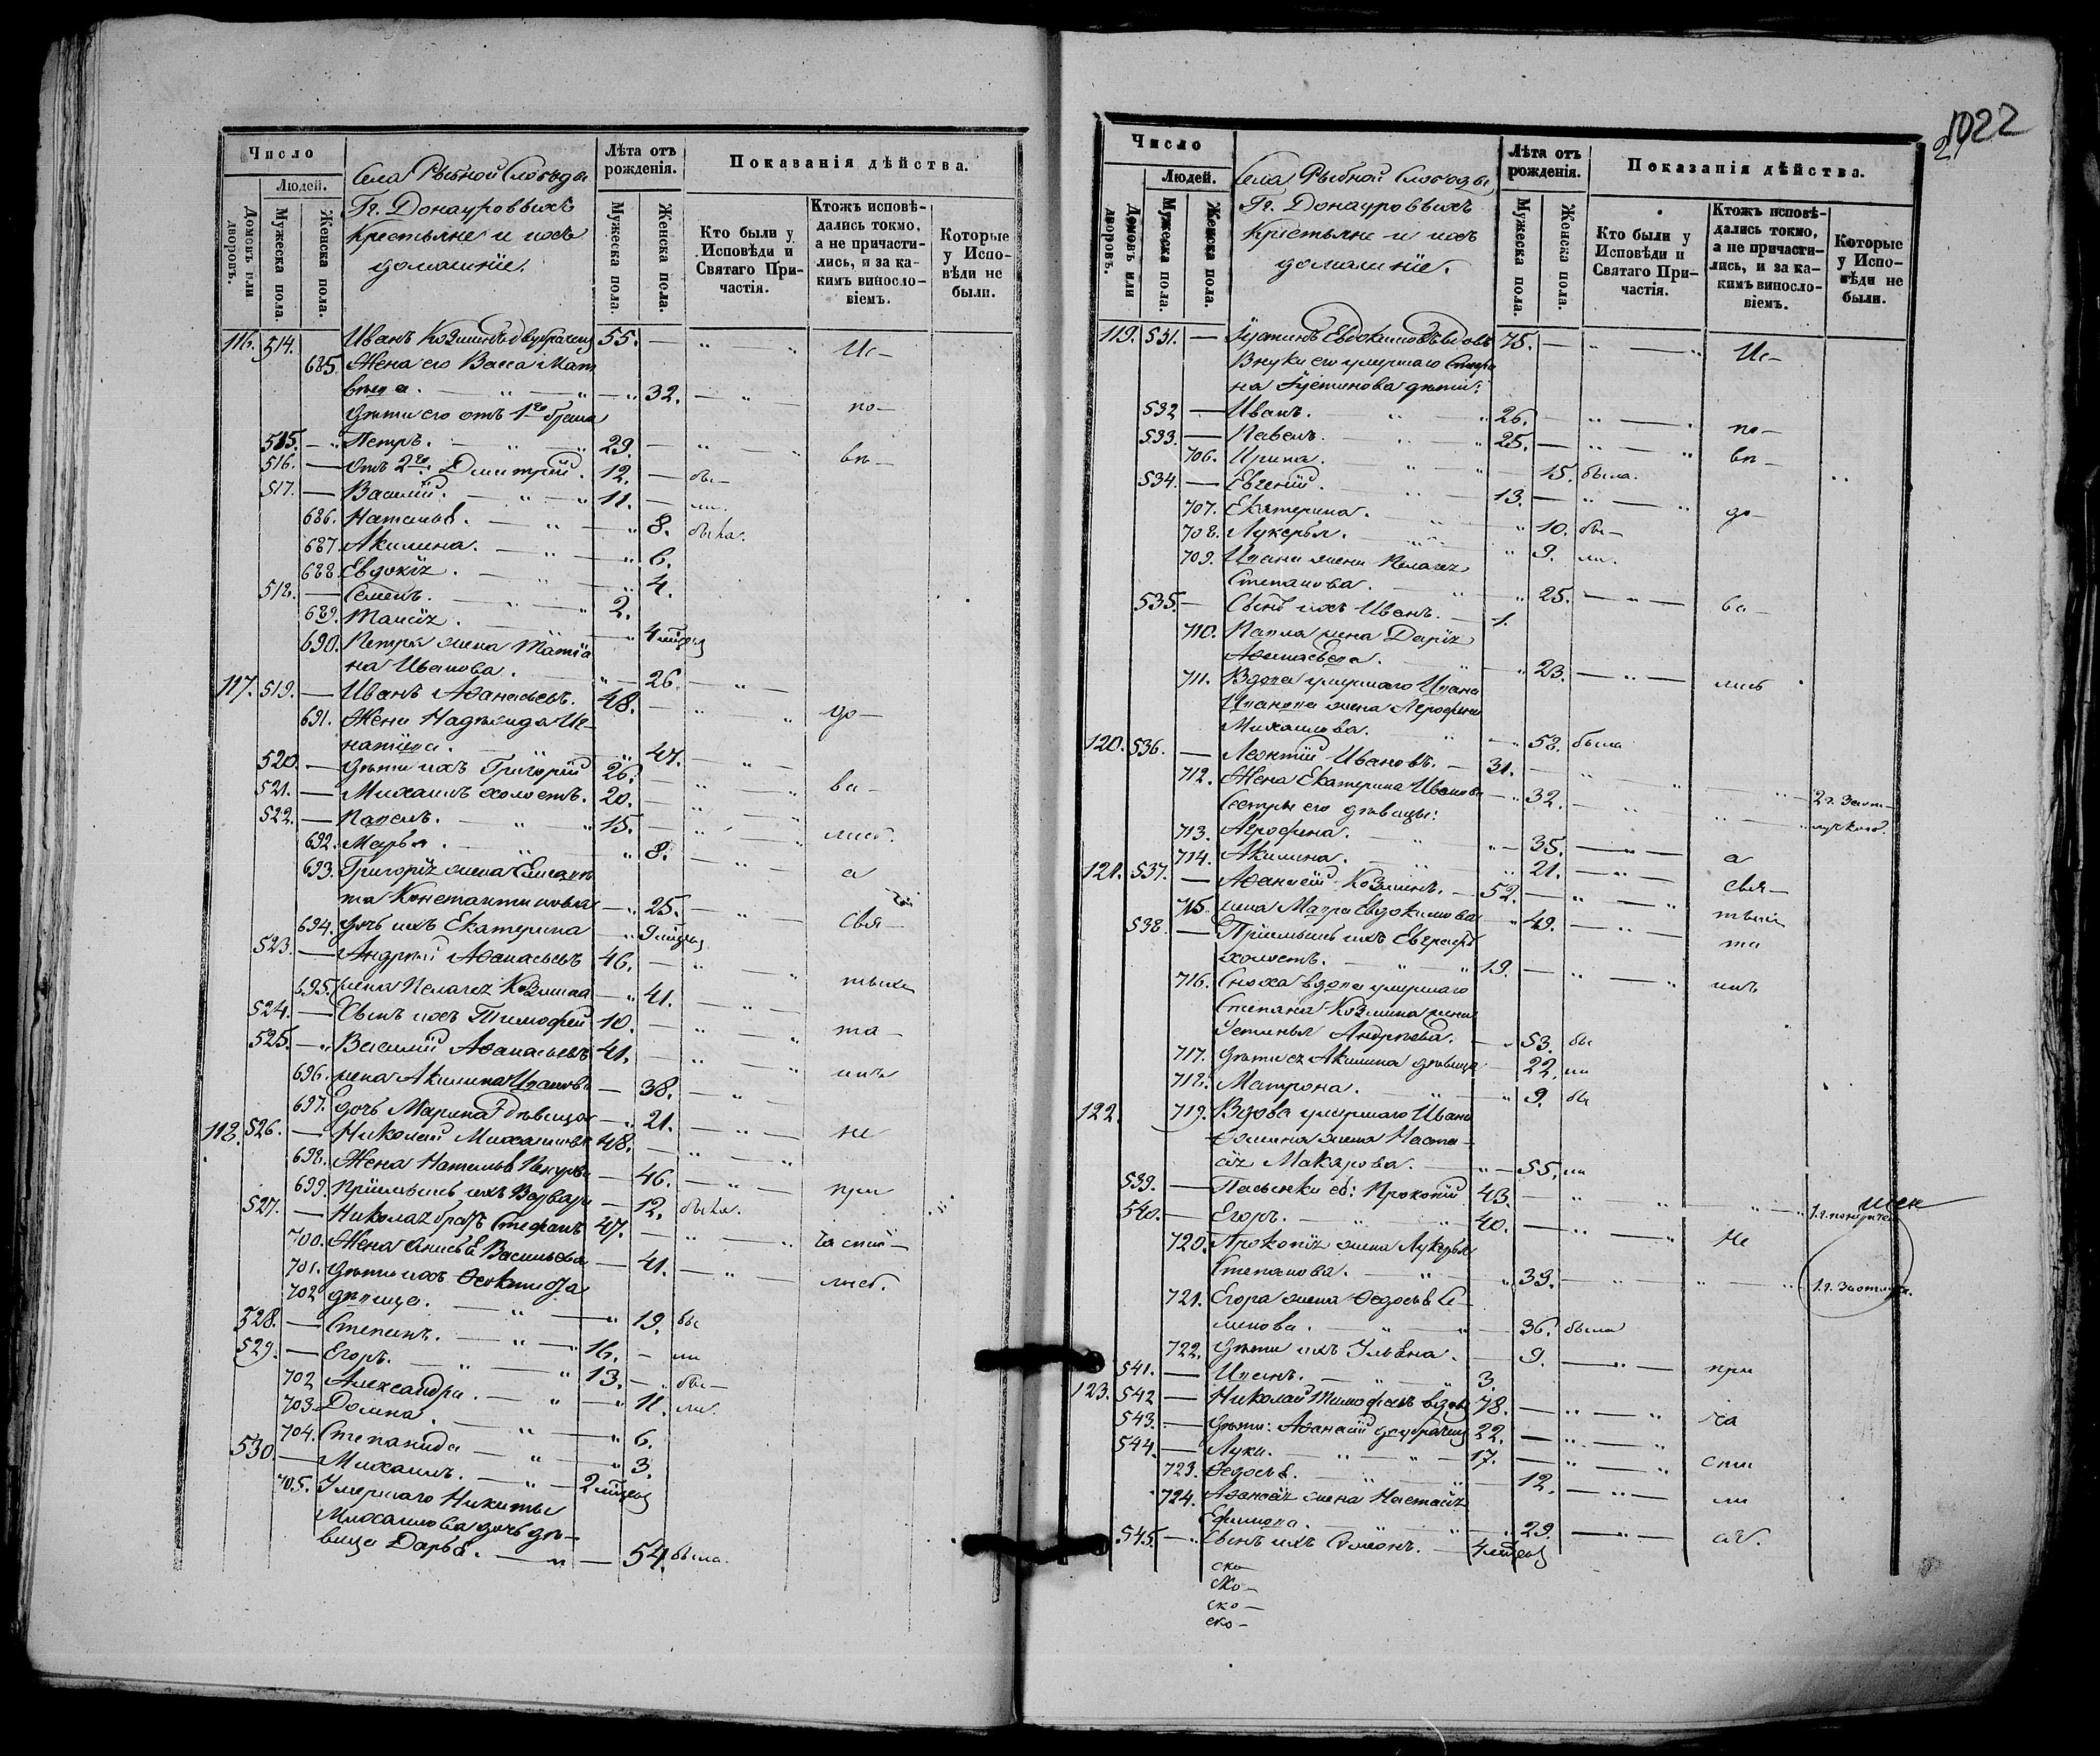 Число
Людей.
Домовъ или дворовъ.
Мужеска пола.
Женска пола.
Села Рыбной Слободы
Гг. Донауровыхъ
Крестьяне и ихъ
домашніе.
Лѣта отъ рожденія.
Мужеска пола.
Женска пола.
Показанія дѣйства.
Кто были у Исповѣди и Святаго Причастія.
Ктожъ исповѣдались токмо, а не причастились, и за какимъ винословіемъ.
Которые у Исповѣди не были.
116. 514. Иванъ Козминъ двубрачн 55. — " " Ис-
685. Жена его Васса Мат
вѣева. — " — " 32. — " — по-
дѣти его отъ 1го брака
515. — " Петръ. — " " 29. — " " вѣ-
516. — отъ 2го Дмитрій. 12. — бы-
517. — Василій. — " — " 11. — ли.
686. Наталья. — " — " 8. была.
687. Акилина. — " — " 6.
688. Евдокія. — " — " 4.
518. — Семенъ. — " — " 2.
689. Таисія. — " 4 мѣсяц
690. Петра жена Татіа
на Иванова. " — 26. — " —
117. 519. — Иванъ Аѳанасьевъ. 48. — " " до-
691. Жена Надежда Иг-
натіева. — " 47. — " —
520. — дѣти ихъ Григорій 26. — " " ва-
521. — Михаилъ холостъ. 20. — " "
522. — Павелъ. — " " 15. — " " лись.
692. Марья. — " — " 8. — " — а
693. Григорія жена Елисаве
та Константинова — " 25. — " — свя-
694. дочь ихъ Екатерина — " 9 мѣсяц
523. — Андрей Аѳанасьевъ 46. — " " тыхъ
695. жена Пелагея Козмина — " 41. — " —
524. — Сынъ ихъ Тимофей 10. — " " та-
525. — " Василій Аѳанасьевъ 41. — " " инъ
696. жена Акилина Иванова — 38. — " —
697. дочь Марина дѣвица — " 21. — " — не
118. 526. — Николай Михаиловъ 48. — " "
698. Жена Наталья — 46. — " — при
699. Пріемышъ ихъ Варвара — 12. была.
527. — Николая братъ Стефанъ 47. — " " частий-
700. Жена Анисья Васильева — 41. — " — лись.
701. дѣти ихъ Ѳеоктиста
702 дѣвица. — " — " 19. бы
528. — Степанъ. — " — " 16. — ли
529. — Егоръ. — " — " 13. — " бы-
702 Александра. — " — " 11. ли.
703. Домна. — " — " 6.
704. Степанида — " — " 3.
530. — Михаилъ. — " — 2 мѣсяц
705. Умершаго Никиты
Михаилова дочь дѣ-
вица Дарья. — " — 54. была.
1022
Число
Людей.
Домовъ или дворовъ.
Мужеска пола.
Женска пола.
Села Рыбной Слободы
Гг. Донауровыхъ
Крестьяне и ихъ
домашніе.
Лѣта отъ рожденія.
Мужеска пола.
Женска пола.
Показанія дѣйства.
Кто были у Исповѣди и Святаго Причастія.
Ктожъ исповѣдались токмо, а не причастились, и за какимъ винословіемъ.
Которые у Исповѣди не были.
119. 531. — Іустинъ Евдокимовъ вдовъ 75. — " — " Ис-
Внуки его умершаго Степа
на Іустинова дѣти:
532 — Иванъ. " " 26. — " " по-
533. — Павелъ. — " " 25. — " " вѣ-
706. Ирина. — " " — 15. была.
534. — Евгеній. — " 13. — " — " до-
707. Екатерина. " " 10. бы-
708. Лукерья. — " " 9. ли.
709. Ивана жена Пелагея
Степанова. — " — 25. — " — ва-
535. — Сынъ ихъ Иванъ. — 1.
710. Павла жена Дарія
Аѳанасьева. — " 23. — " — лись
711. Вдова умершаго Ивана
Иванова жена Агрофена
Михаилова. " — " 58. была
120. 536. — Леонтій Ивановъ. — 31. — " " — " 2 г. за от-
712. Жена Екатерина Иванова — " 32. — " — " — " лучкою.
Сестры его дѣвицы:
713. Агрофена. — " " — 35. — " — а
714. Акилина. — " " 21. — " — свя-
121. 537. — Аѳанасій Козминъ. — 52. — " " тыхъ
715. жена Мавра Евдокимова " 49. — " — та
538. — Пріемышъ ихъ Евграфъ
холостъ. — " " 19. — " " инъ
716. Сноха вдова умершаго
Степана Козмина жена
Устинья Андреева. — " 53. бы
717. дѣти ея Акилина дѣвица — 22. ли
718. Матрона. — " — " 9. бы
122. 719. Вдова умершаго Ивана
Ѳомина жена Наста-
сія Макарова. — " — 55. ли
539. — Пасынки ея: Прокопій 43. — " " — " 1 г.
540. — Егоръ. — " — " 40. — " — " не
720. Прокопія жена Лукерья
Степанова. — " — " 39. — " — " — " 1 г. за отлучк.
721. Егора жена Ѳедосья Се-
менова. — " " — 36. была
722. дѣти ихъ Ульяна. — 9. — " — при
541. — Иванъ. — " " 3.
123. 542 — Николай Тимофеевъ вдовъ 78. — " — " ча
543. — дѣти: Аѳанасій двубрачн 22. — " — "
544. — Лука. — " — " 17. — " — " сти
723. Ѳедосья. — " " 12. — " — ли
724. Аѳанасія жена Настасія
Ефимова. — " — 29. — " — сь.
545. — " Сынъ ихъ Симеонъ. — 4 мѣсяц
ско-
ско-
ско-
ско-